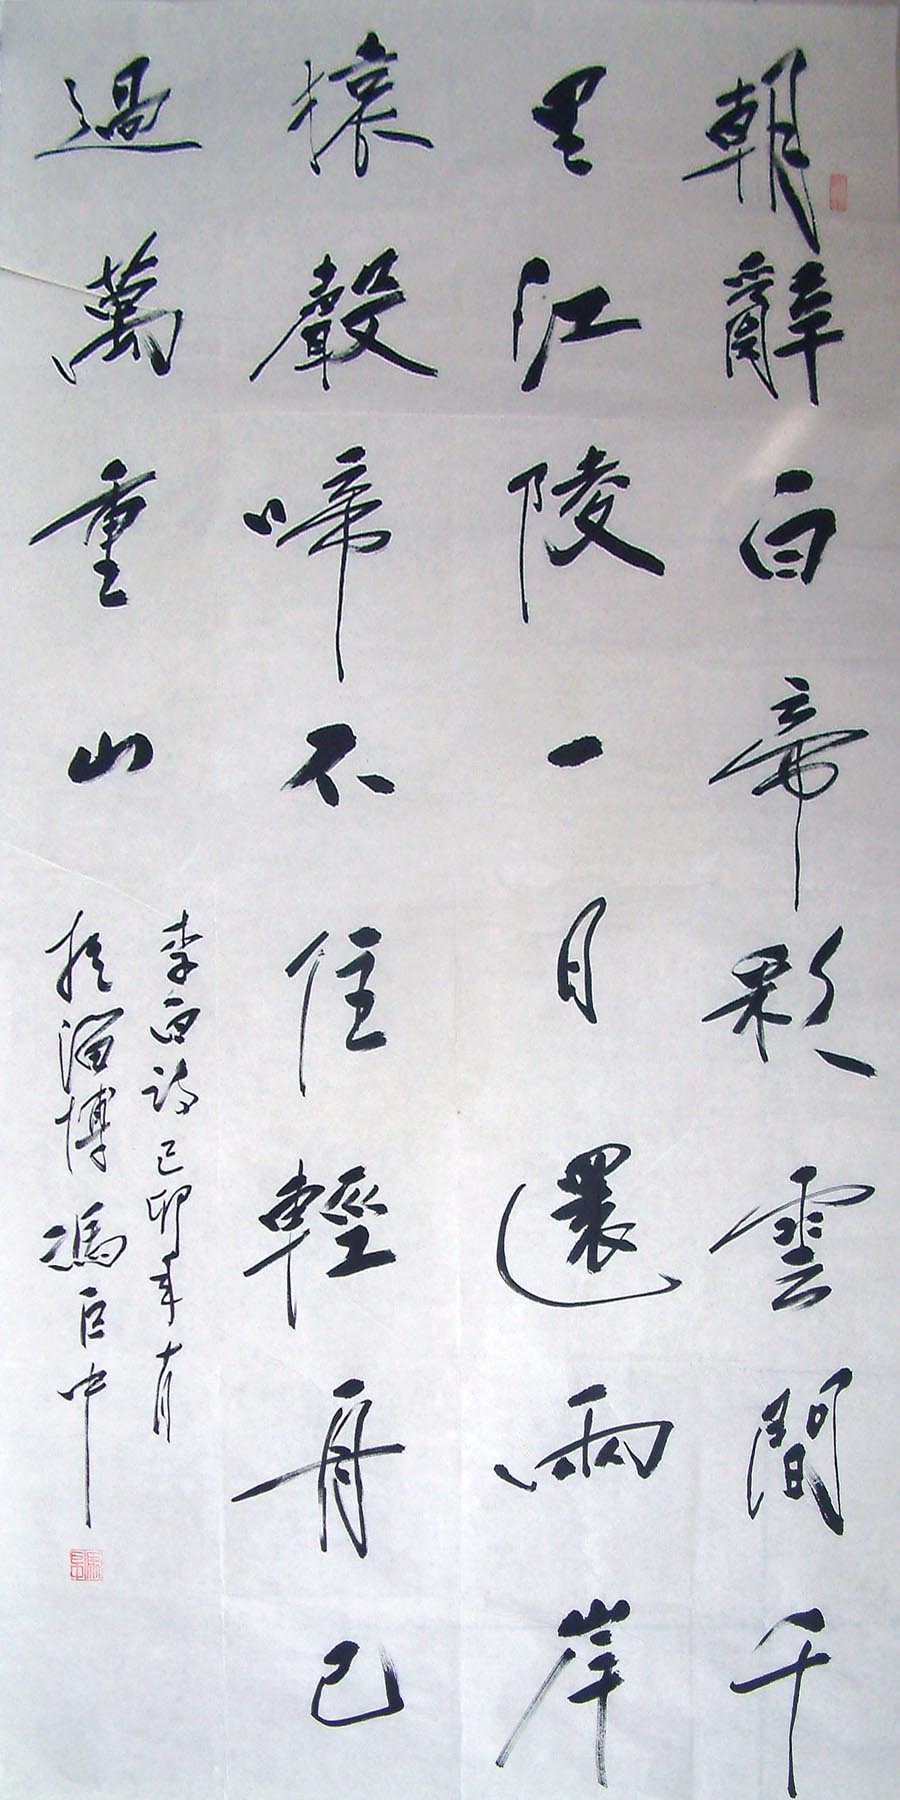 朝辭白帝彩雲間千
里江陵一日還兩岸
猿聲啼不住輕舟已
過萬重山
李白詩己卯年六月
於淄博馮巨中